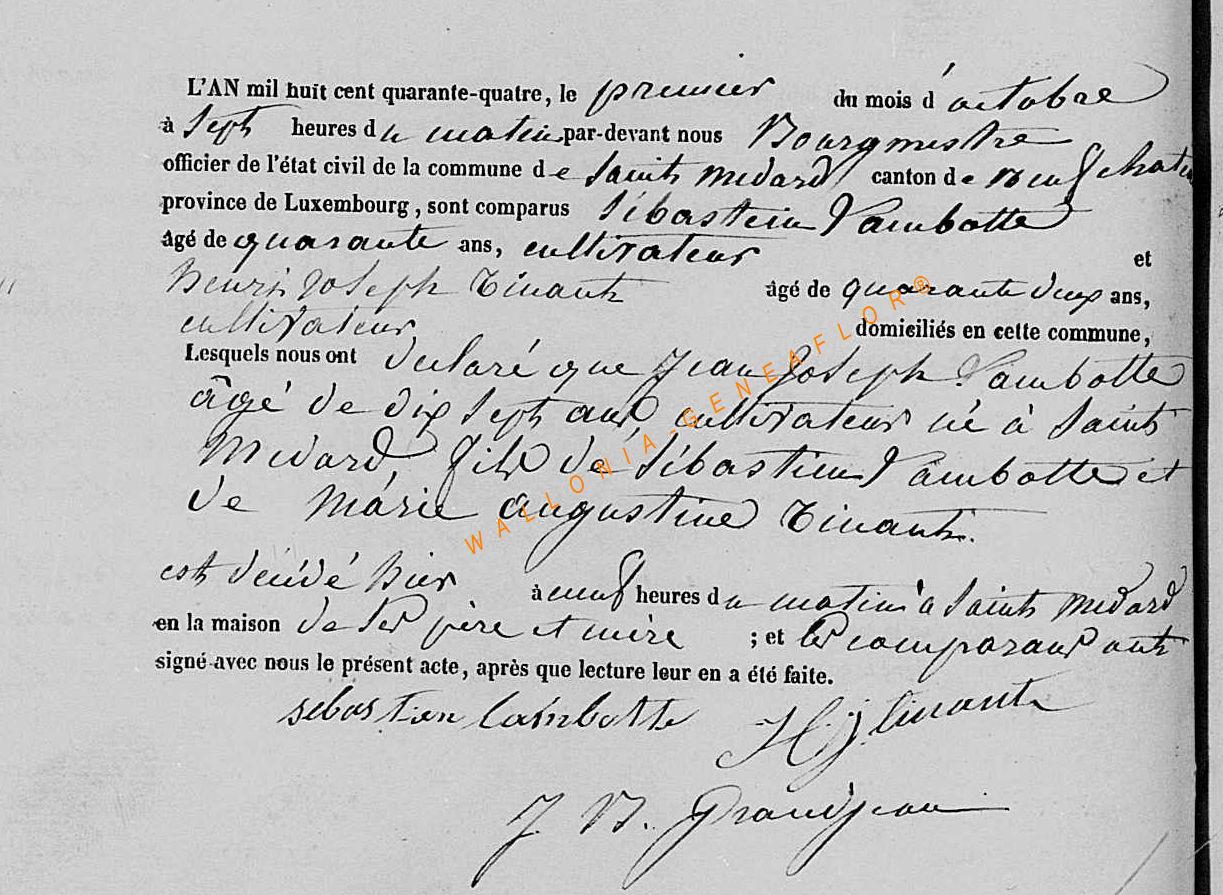 L'AN mil huit cent quarante-quatre, le premier du mois d'octobre
à Sept heures du matin par-devant nous Bourgmestre
officier de l'état civil de la commune de Saint Medard canton de Neufchateau
province de Luxembourg, sont comparus Sébastien Lambotte
âgé de quarante ans, cultivateur et
henri joseph Tinant âgé de quarante deux ans,
cultivateur domiciliés en cette commune,
Lesquels nous ont declaré que Jean Joseph Lambotte
âgé de dix Sept ans, cultivateur né à Saint
Medard, fils de Sébastien Lambotte et
de Marie Augustine Tinant.
est décédé hier à neuf heures du matin à Saint Medard
en la maison de Ses père et mère ; et les comparans ont
signé avec nous le présent acte, après que lecture leur en a été faite.
sebastien lambotte H j tinant
J B. Grandjean
WALLONIA-GENEAFLOR®